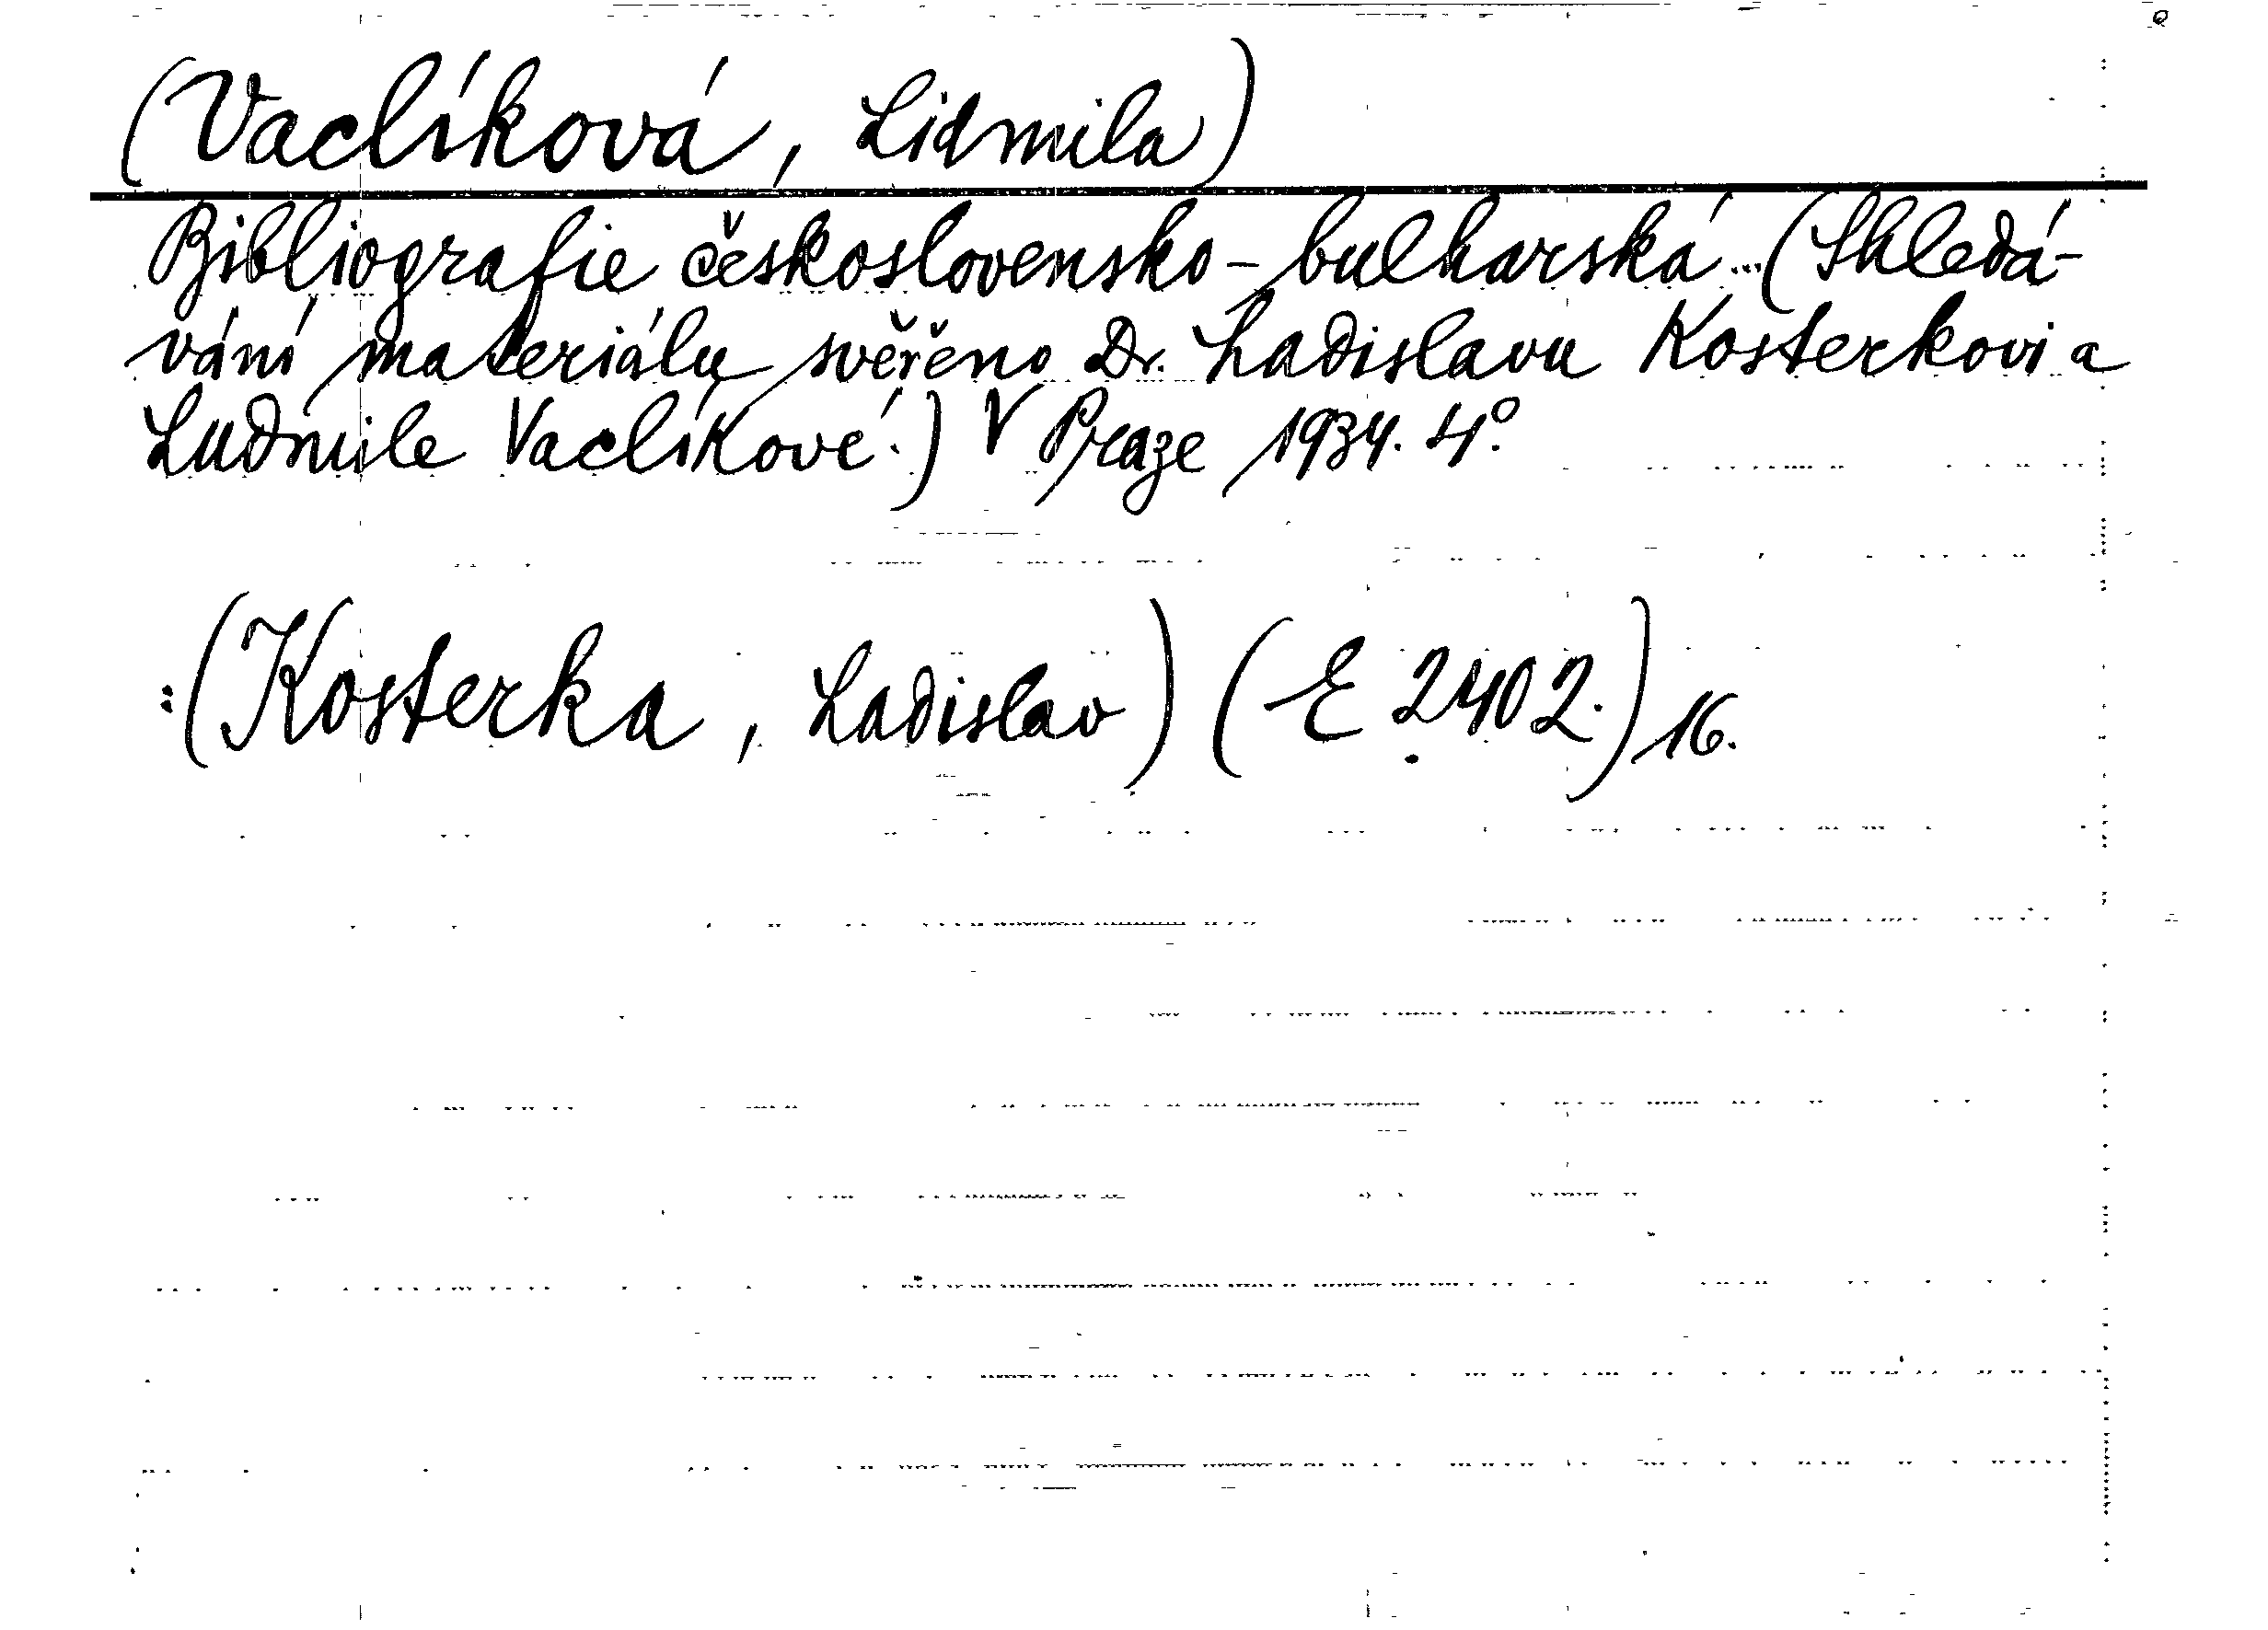 (Vaclíková, Lidmila)
Bibliografie československo-bulharská...(Shledá-
vání materiálu svěřeno Dr. Ladislavu Kosterkovi a
Ludmile Vaclíkové.) V Praze 1934. 4°.
:(Kosterka, Ladislav) (E 2402.) 16.